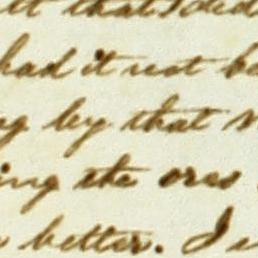 that I did
had it not be
by that
ing the ores
better. I